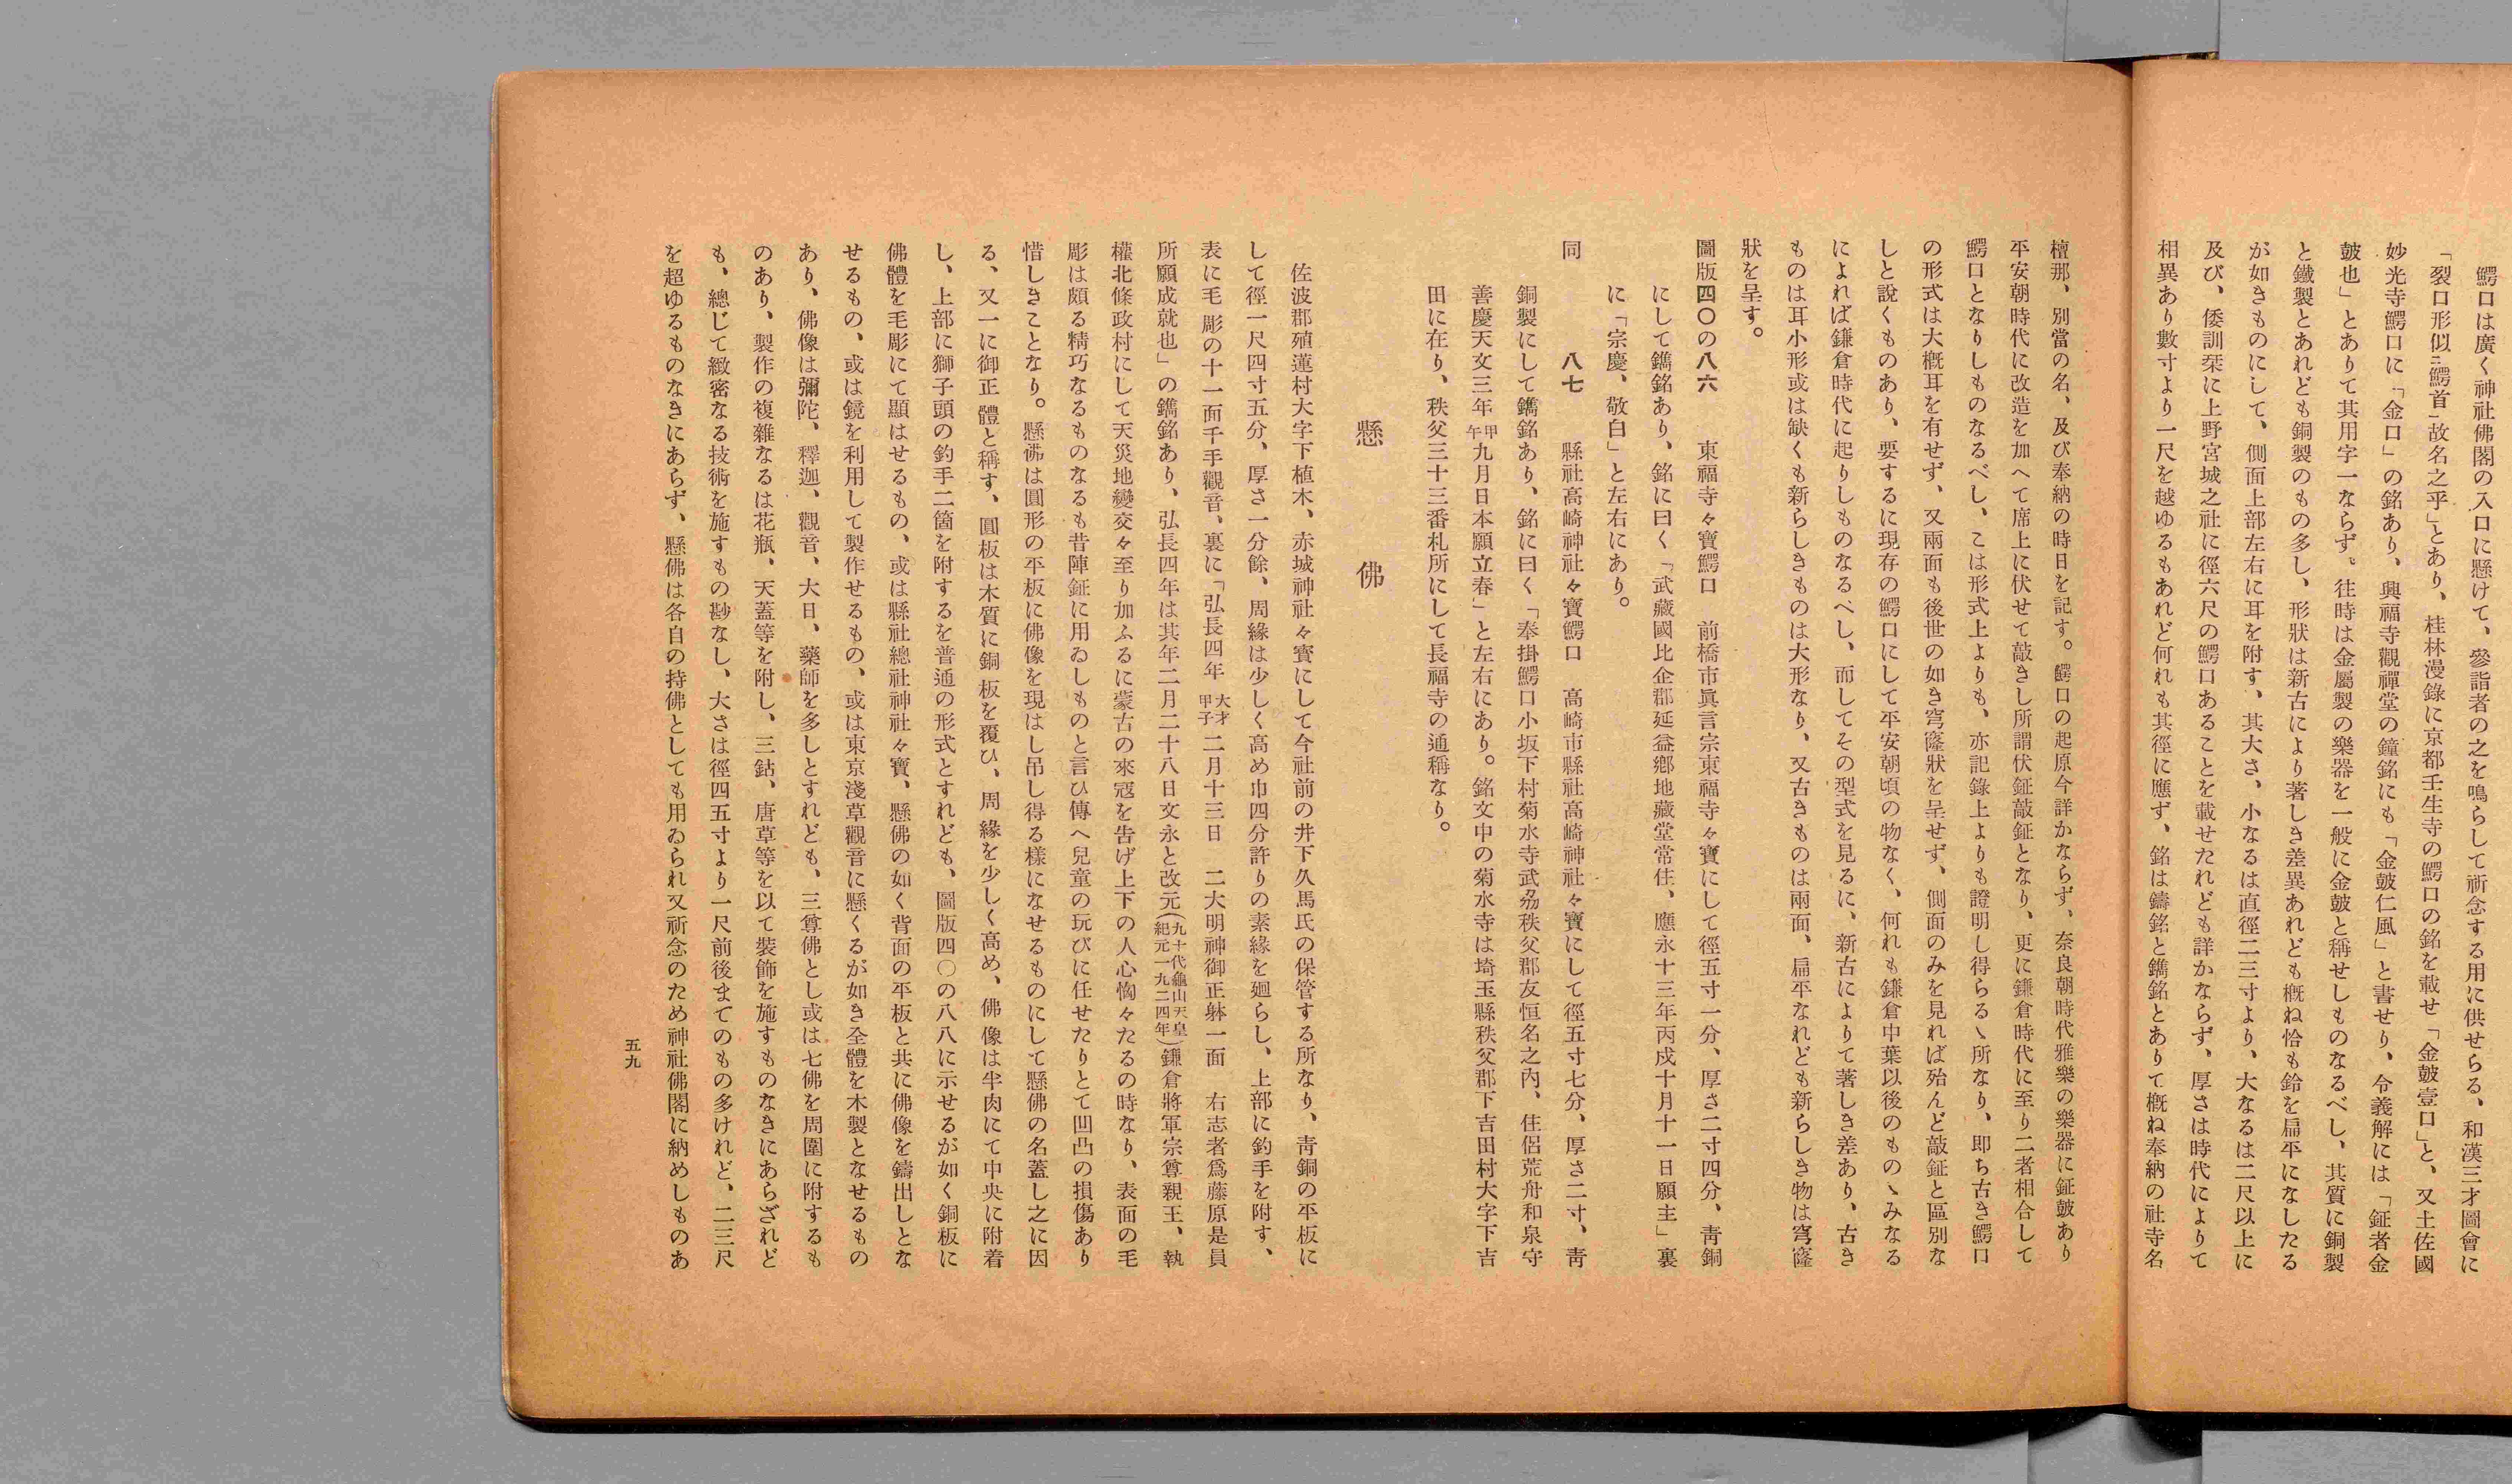 鰐口は廣く神社佛閣の入口に懸けて、參詣者の之を鳴らして祈念する用に供せらる、和漢三才圖會に
「裂口形似㆓鰐首㆒故名之乎」とあり、桂林漫錄に京都壬生寺の鰐口の銘を載せ「金皷壹口」と、又土佐國
妙光寺鰐口に「金口」の銘あり、興福寺觀禪堂の鐘銘にも「金皷仁風」と書せり、令義解には「鉦者金
皷也」とありて其用字一ならず。往時は金屬製の樂器を一般に金皷と稱せしものなるべし、其質に銅製
と鐵製とあれども銅製のもの多し、形狀は新古により著しき差異あれども槪ね恰も鈴を扁平になしたる
が如きものにして、側面上部左右に耳を附す、其大さ、小なるは直徑二三寸より、大なるは二尺以上に
及び、倭訓栞に上野宮城之社に徑六尺の鰐口あることを載せたれども詳かならず、厚さは時代によりて
相異あり數寸より一尺を越ゆるもあれど何れも其徑に應ず、銘は鑄銘と鐫銘とありて槪ね奉納の社寺名
檀那、別當の名、及び奉納の時日を記す。鰐口の起原今詳かならず、奈良朝時代雅樂の樂器に鉦皷あり
平安朝時代に改造を加へて席上に伏せて敲きし所謂伏鉦敲鉦となり、更に鎌倉時代に至り二者相合して
鰐口となりしものなるべし、こは形式上よりも、亦記錄上よりも證明し得らるゝ所なり、卽ち古き鰐口
の形式は大槪耳を有せず、又兩面も後世の如き穹窿狀を呈せず、側面のみを見れば殆んど敲鉦と區別な
しと說くものあり、要するに現存の鰐口にして平安朝頃の物なく、何れも鎌倉中葉以後のものゝみなる
によれば鎌倉時代に起りしものなるべし、而してその型式を見るに、新古によりて著しき差あり、古き
ものは耳小形或は缺くも新らしきものは大形なり、又古きものは兩面、扁平なれども新らしき物は穹窿
狀を呈す。
圖版四〇の八六　東福寺々寶鰐口　前橋市眞言宗東福寺々寶にして徑五寸一分、厚さ二寸四分、靑銅
にして鐫銘あり、銘に曰く「武藏國比企郡延益鄕地藏堂常住、應永十三年丙戌十月十一日願主」裏
に「宗慶、敬白」と左右にあり。
同　八七　縣社高崎神社々寶鰐口　高崎市縣社高崎神社々寶にして徑五寸七分、厚さ二寸、靑
銅製にして鐫銘あり、銘に曰く「奉掛鰐口小坂下村菊水寺武刕秩父郡友恒名之內、住侶荒舟和泉守
善慶天文三年甲午九月日本願立春」と左右にあり。銘文中の菊水寺は埼玉縣秩父郡下吉田村大字下吉
田に在り、秩父三十三番札所にして長福寺の通稱なり。
懸佛
佐波郡殖蓮村大字下植木、赤城神社々寳にして今社前の井下久馬氏の保管する所なり、靑銅の平板に
して徑一尺四寸五分、厚さ一分餘、周緣は少しく高め巾四分許りの素緣を廻らし、上部に釣手を附す、
表に毛彫の十一面千手觀音、裏に「弘長四年大才甲子二月十三日　二大明神御正躰一面　右志者爲藤原是員
所願成就也」の鐫銘あり、弘長四年は其年二月二十八日文永と改元(九十代龜山天皇紀元一九二四年)鎌倉將軍宗尊親王、執
權北條政村にして天災地變交々至り加ふるに蒙古の來寇を告げ上下の人心恟々たるの時なり、表面の毛
彫は頗る精巧なるものなるも昔陣鉦に用ゐしものと言ひ傳へ兒童の玩びに任せたりとて凹凸の損傷あり
惜しきことなり。懸佛は圓形の平板に佛像を現はし吊し得る樣になせるものにして懸佛の名蓋し之に因
る、又一に御正體と稱す、圓板は木質に銅板を覆ひ、周緣を少しく高め、佛像は半肉にて中央に附着
し、上部に獅子頭の釣手二箇を附するを普通の形式とすれども、圖版四〇の八八に示せるが如く銅板に
佛體を毛彫にて顯はせるもの、或は縣社總社神社々寶、懸佛の如く背面の平板と共に佛像を鑄出しとな
せるもの、或は鏡を利用して製作せるもの、或は東京淺草觀音に懸くるが如き全體を木製となせるもの
あり、佛像は彌陀、釋迦、觀音、大日、藥師を多しとすれども、三尊佛とし或は七佛を周圍に附するも
のあり、製作の複雜なるは花瓶、天蓋等を附し、三鈷、唐草等を以て裝飾を施すものなきにあらざれど
も、總じて緻密なる技術を施すもの尠なし、大さは徑四五寸より一尺前後までのもの多けれど、二三尺
を超ゆるものなきにあらず、懸佛は各自の持佛としても用ゐられ又祈念のため神社佛閣に納めしものあ
五九